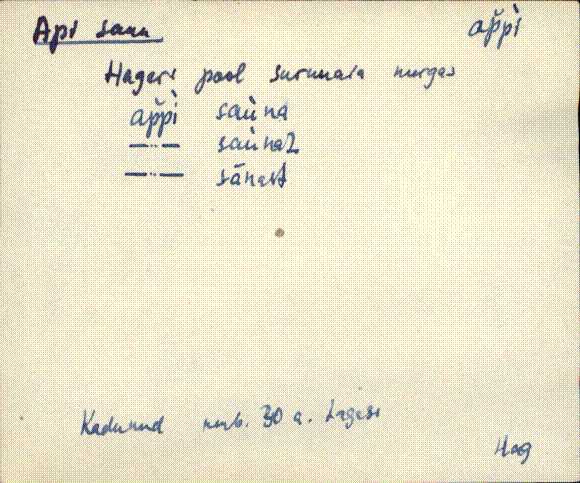 Api saun
ap̆pì
Hageri pool surnuaia nurgas
ap̆pì saùna
—..— saùnaᴢ
—..— sānast
Kadunud umb. 30 a. tagasi
Hag